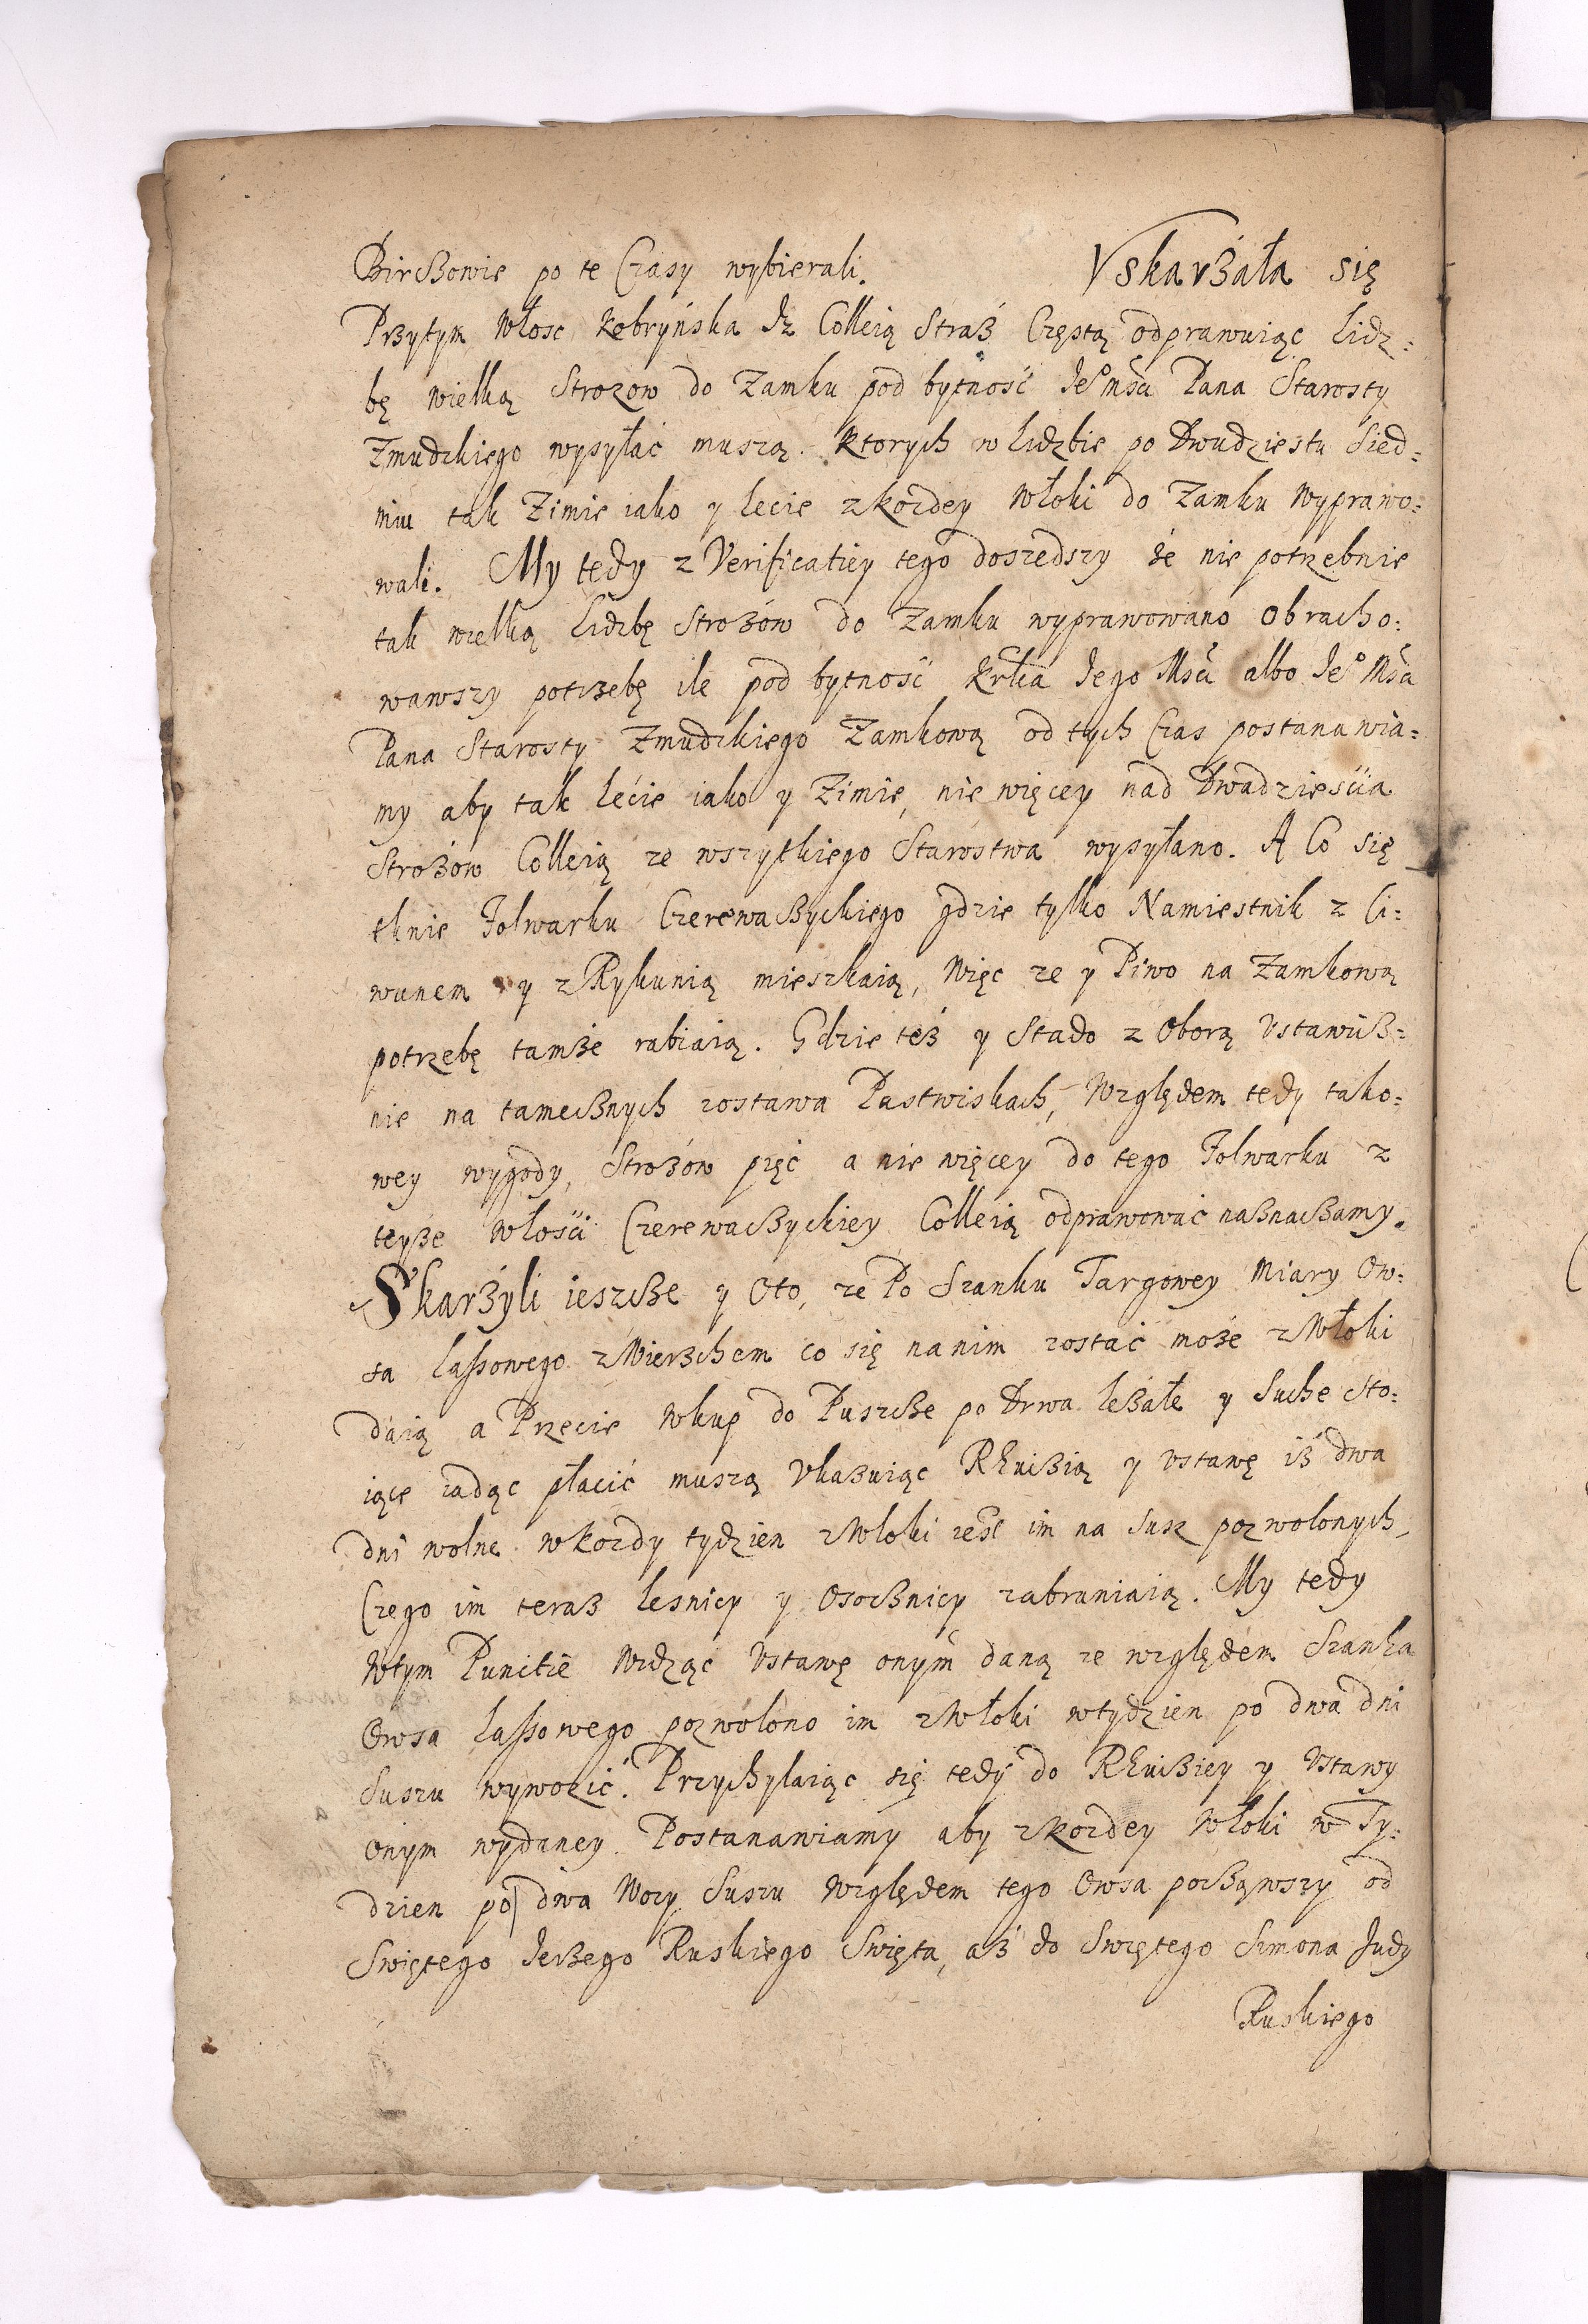 Birczowie po te Czasy wybierali. Vskarżała się
Przytym Włosc Kobryńska Iz Colleią Straż Częstą odprawuiąc Licz=
bę wielką Strozow do Zamku pod bytność Ie° Mści Pana Starosty
Zmudzkiego wysyłać muszą. Ktorych w liczbie po Dwudziestu Sied=
miu tak Zimie iako y lecie z kozdey Włoki do Zamku wyprawo=
wali. My tedy z Verificatiey tego doszedszy że nie potrzebnie
tak wielką liczbę Strożow do Zamku wyprawowano Obracho=
wawszy potrzebę ile pod bytność Krla Iego Mści albo Ie° Mści
Pana Starosty Zmudzkiego Zamkową od tych Czas postanawia=
my aby tak lecie iako y Zimie, nie więcey nad Dwadzieścia
Strożow Colleią ze wszytkiego Starostwa wysyłano. A Co się
tknie Folwarku Czerewaczyckiego gdzie tylko Namiestnik z Ci=
wunem y z Rykunią mieszkaią, Więc ze y Piwo na Zamkową
potrzebę tamże rabiaią. Gdzie też y Stado z Oborą Vstawicz=
nie na tamecznych zostawa Pastwiskach, Względem tedy tako=
wey wygody, Strożow pięć a nie więcey do tego Folwarku z
teyże Włości Czerewaczyckiey Colleią odprawować naznaczamy.
Skarżyli ieszcze y Oto, ze Po Szanku Targowey Miary Ow=
sa lassowego z Wierzchem co się na nim zostać może z Włoki
daią a Przecie Wkup do Puszcze po Drwa leżałe y Suche sto=
iące iadąc płacić muszą Vkazuiąc Rewizią y Vstawę iż dwa
dni wolne w kozdy tydzien z Wloki iest im na Susz pozwolonych,
Czego im teraz lesnicy y Osocznicy zabraniaią. My tedy
Wtym Punctie Widząc Vstawę onym daną ze względem Szanka
Owsa lassowego pozwolono im z Włoki w tydzien po dwa dni
Suszu wywozić. Przychylaiąc się tedy do Rewiziey y Vstawy
Onym wydaney Postanawiamy aby z kozdey Włoki w Ty=
dzien po dwa Wozy Suszu Względem tego Owsa począwszy od
Swiętego Ierzego Ruskiego Swięta, aż do Swiętego Szmona Judy
Ruskiego